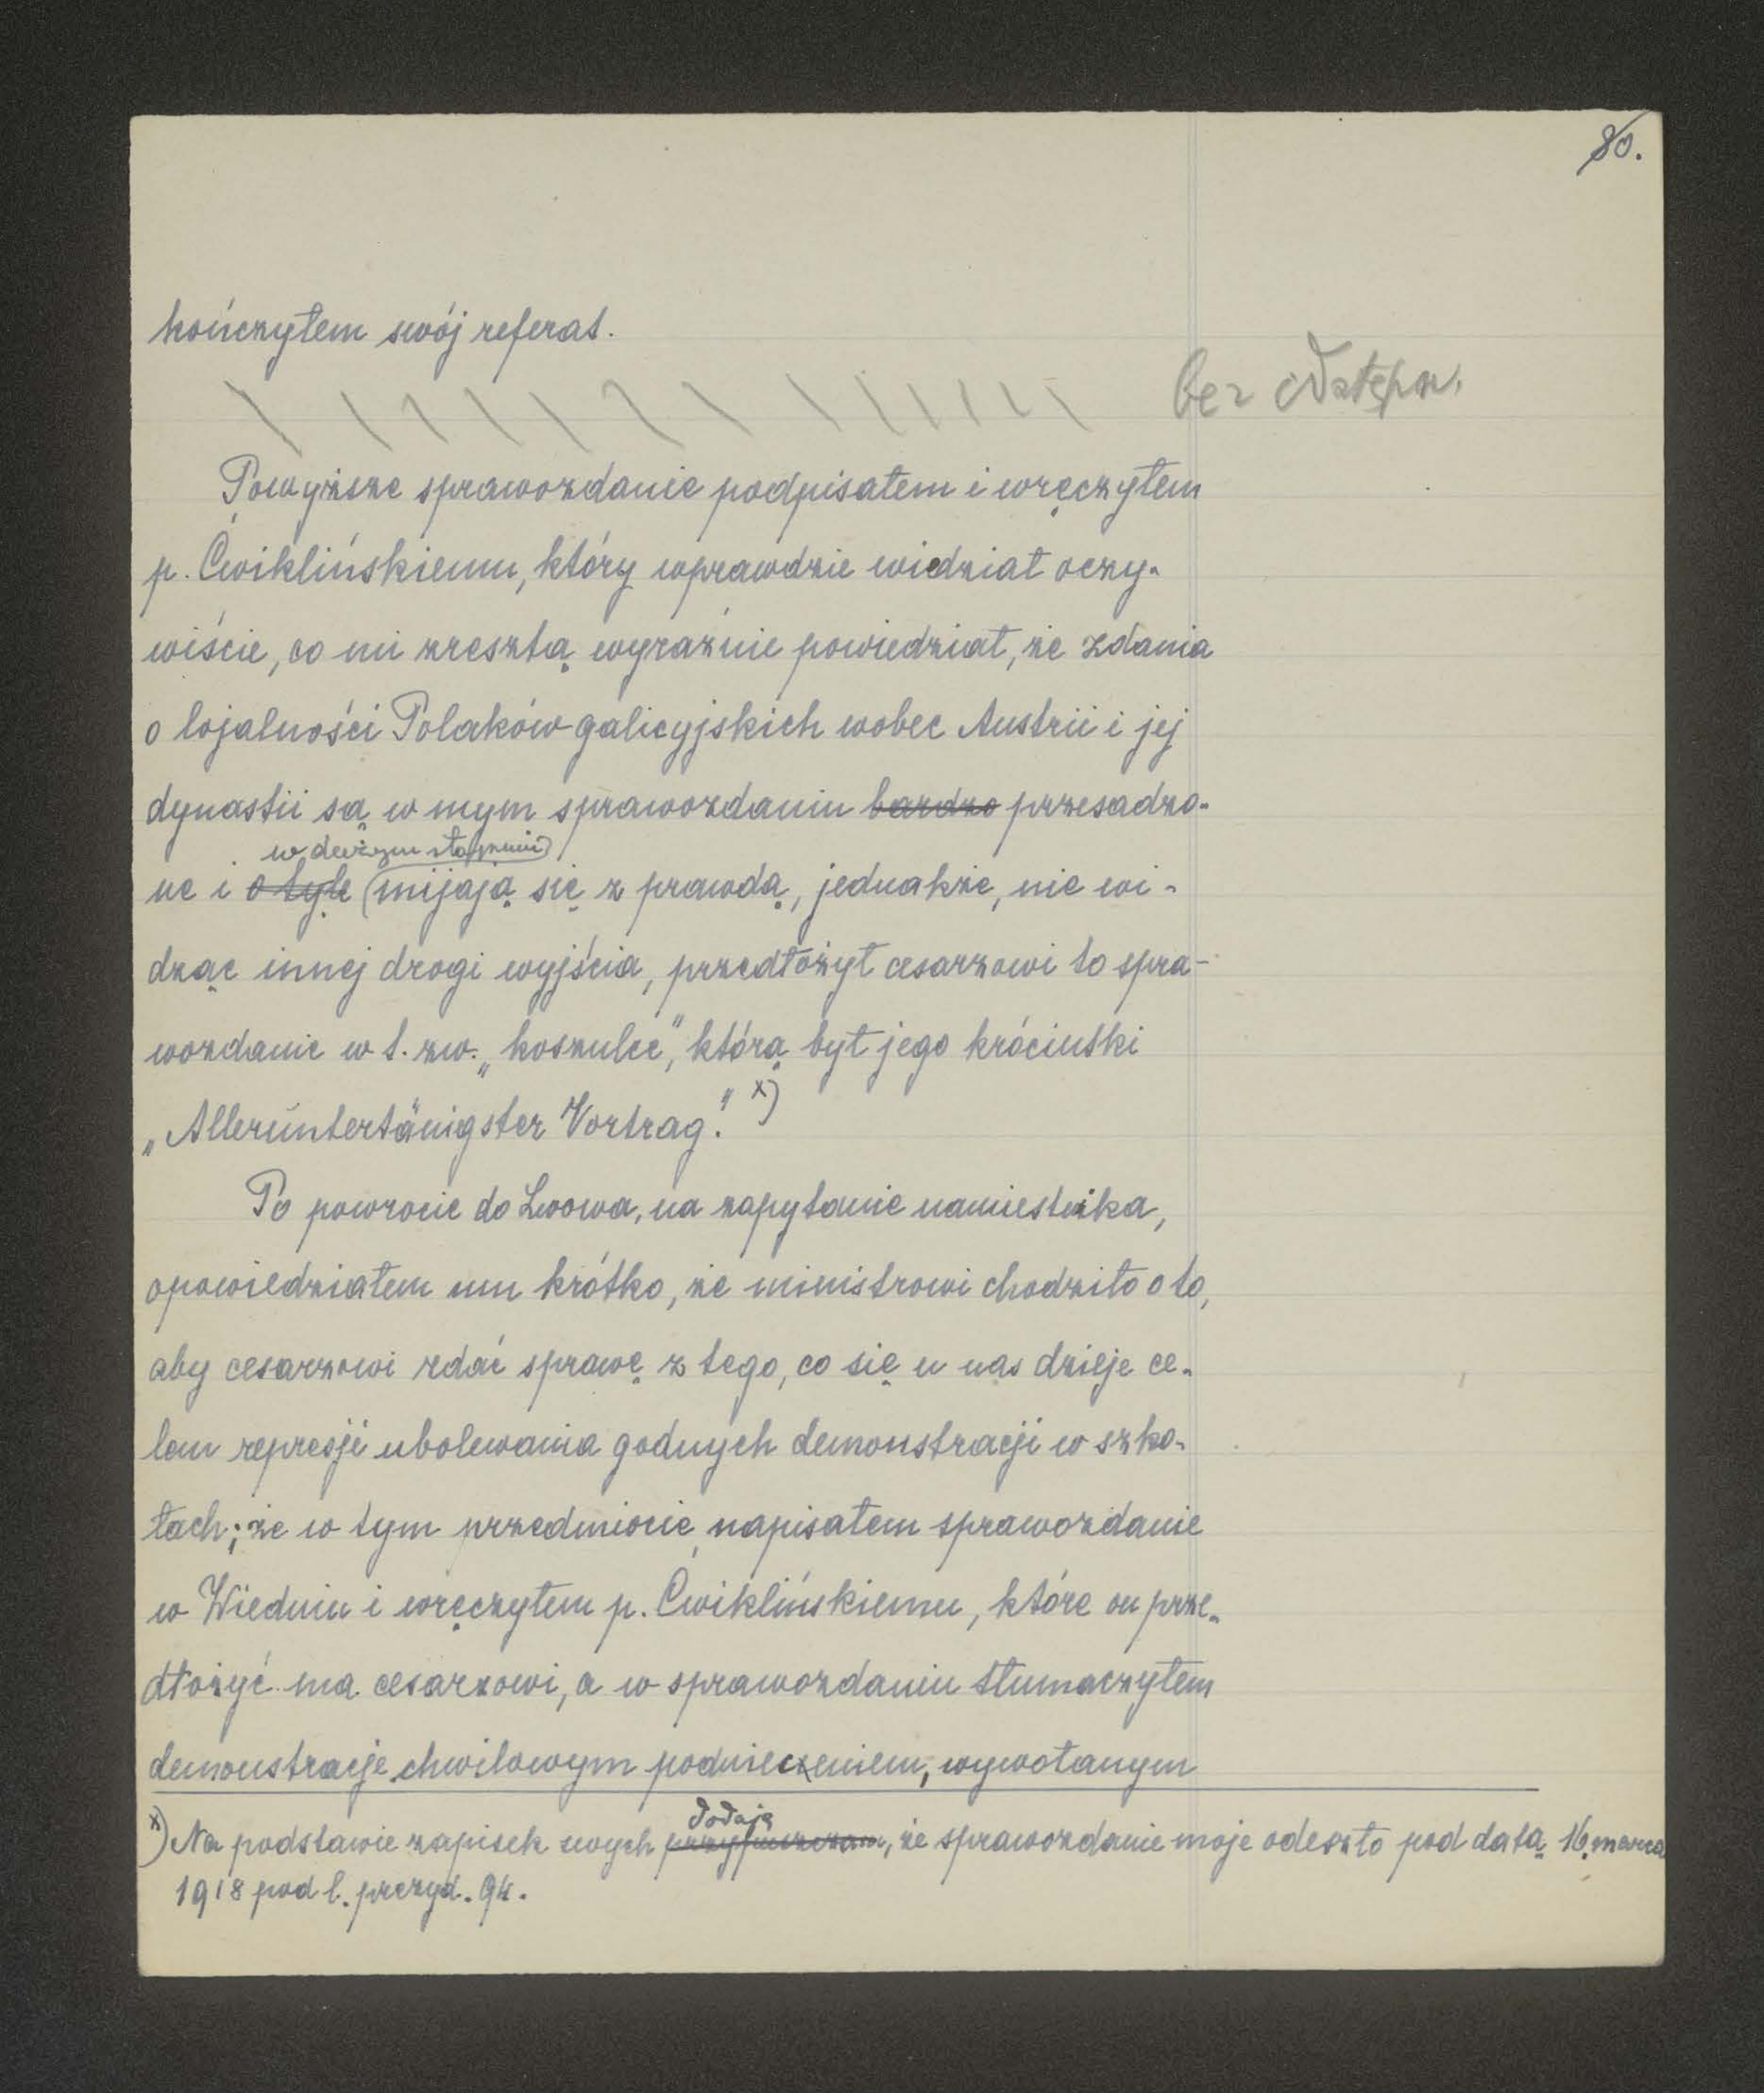 80.
kończyłem swój referat.
bez odstępu.
Powyższe sprawozdanie podpisałem i wręczyłem
p. Ćwiklińskiemu, który wprawdzie wiedział oczy-
wiście, co mi zresztą wyraźnie powiedział, że zdania
o lojalności Polaków galicyjskich wobec Austrii i jej
dynastii są w mym sprawozdaniu bardzo przesadzo-
w dużym stopniu
ne i o tyle mijają się z prawdą, jednakże, nie wi-
dząc innej drogi wyjścia, przedłożył cesarzowi to spra-
wozdanie w t. zw. „koszulce", którą był jego króciutki
„Alleruntertänigster Vortrag." x)
Po powrocie do Lwowa, na zapytanie namiestnika,
opowiedziałem mu krótko, że ministrowi chodziło o to,
aby cesarzowi zdać sprawę z tego, co się u nas dzieje ce-
lem represji ubolewania godnych demonstracji w szko-
łach; że w tym przedmiocie napisałem sprawozdanie
w Wiedniu i wręczyłem p. Ćwiklińskiemu, które on prze-
dłożyć ma cesarzowi, a w sprawozdaniu tłumaczyłem
demonstracje chwilowym podnieceniem, wywołanym
dodaję
x) Na podstawie zapisek swych przypuszczam, że sprawozdanie moje odeszło pod datą 16. marca
1918 pod l. prezyd. 94.